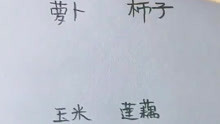 萝卜 柿子
玉米 莲藕